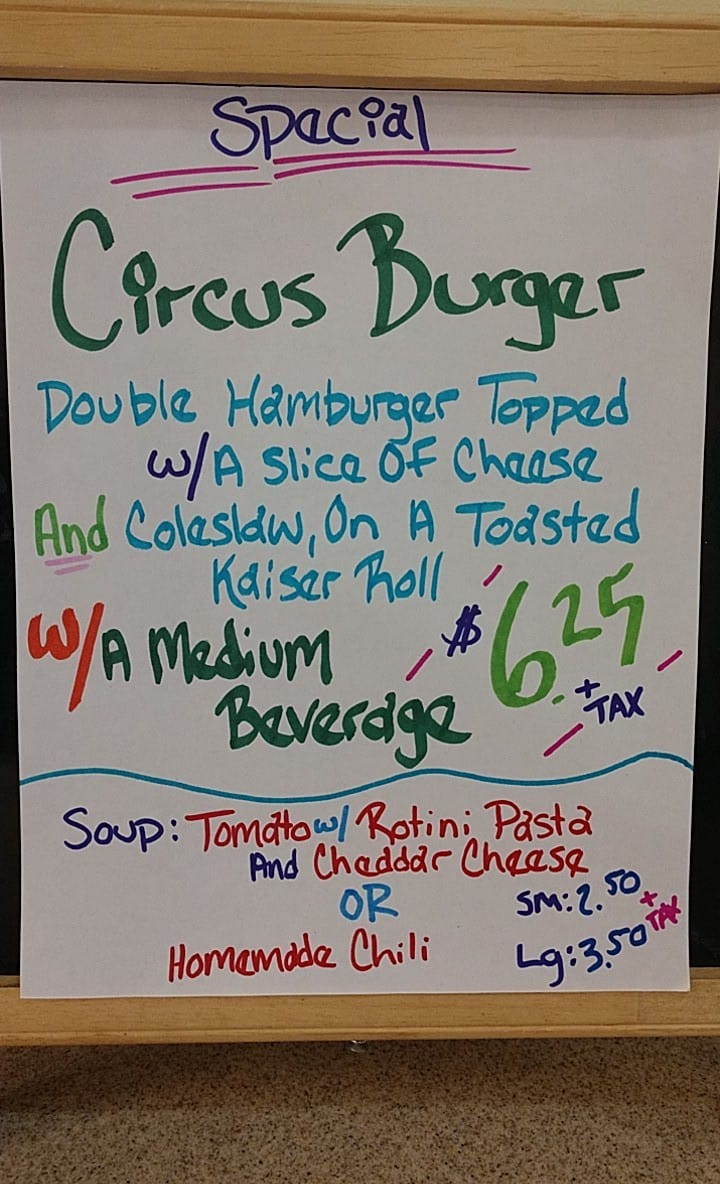 Special
Circus Burger
Double Hamburger Topped
w/A Slice Of Cheese
And Coleslaw, On A Toasted
Kaiser Roll
w/A Medium
Beverage
$6.25
+ TAX
Soup: Tomato w/ Rotini Pasta
And Cheddar Cheese
OR
Homemade Chili
SM: 2.50
Lg: 3.50
+ TAX